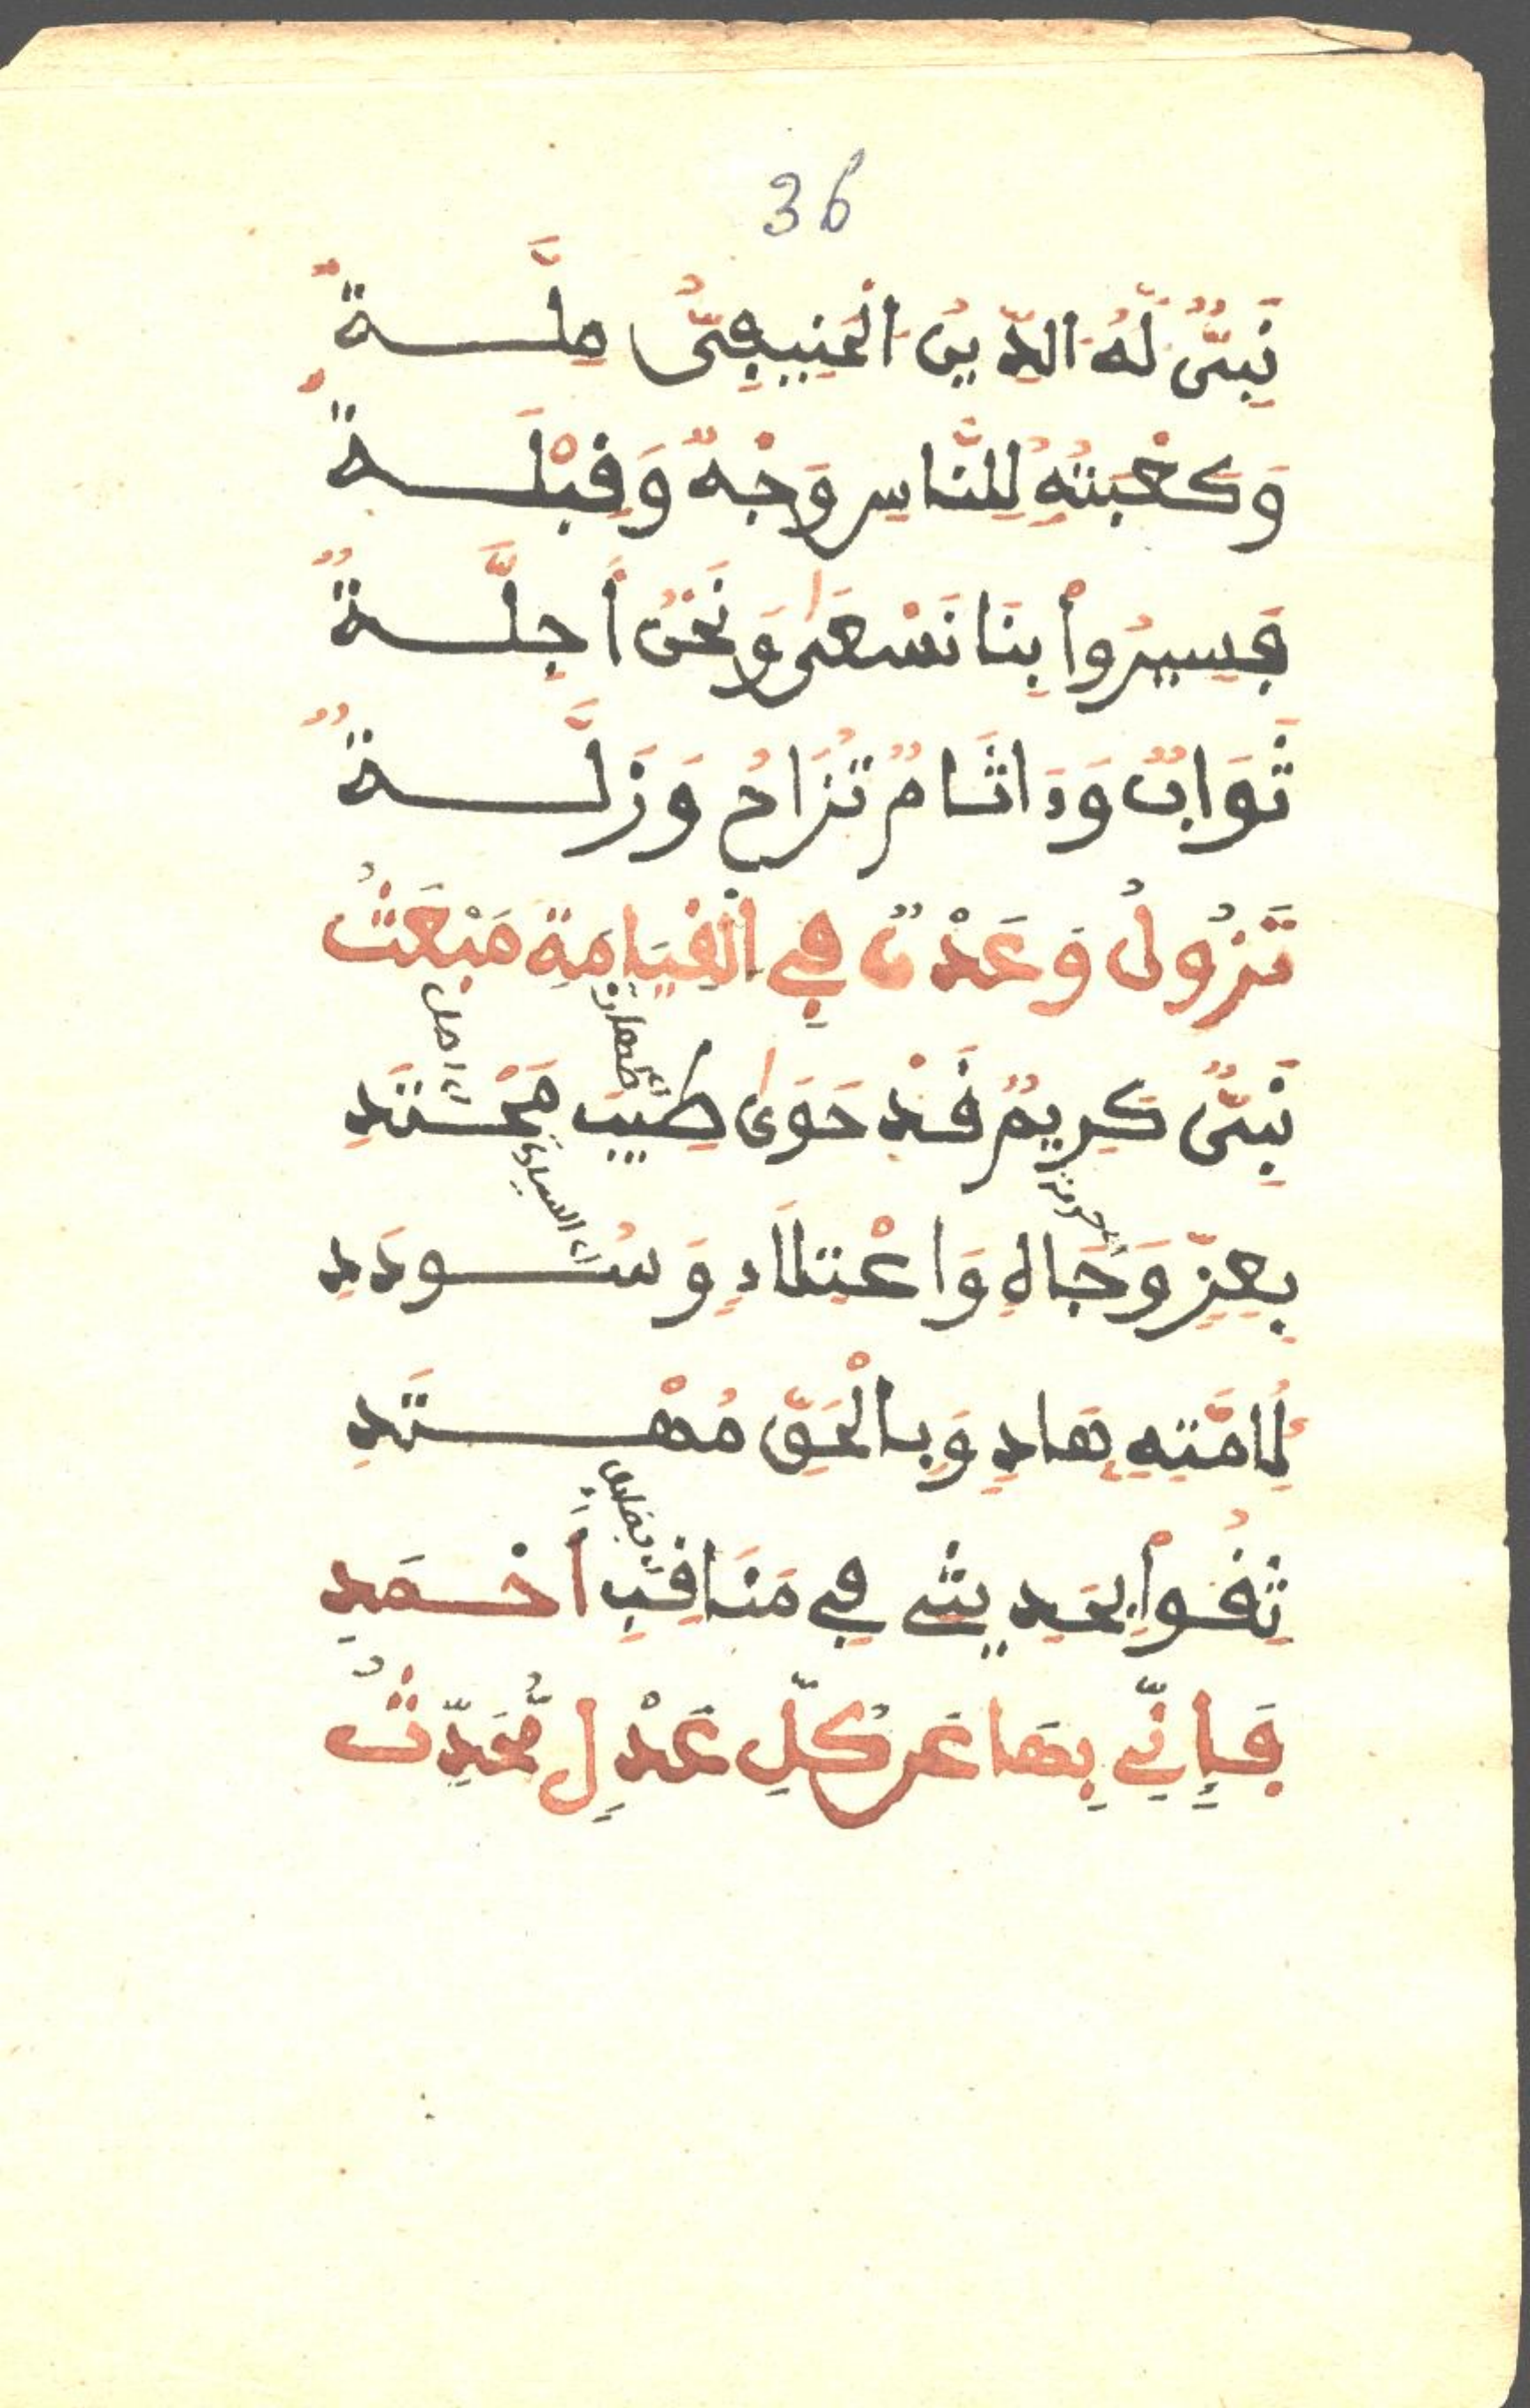 36
نَبِيٌّ لَهُ الدِّينُ الْحَنِيفِيُّ مِلَّةٌ
وَكَعْبَتُهُ لِلنَّاسِ وَجْهٌ وَقِبْلَةٌ
فَسِيرُواْ بِنَا نَسْعَى وَنَحْنُ أَجِلَّةٌ
ثَوَابٌ وَءَاثَامٌ تُزَاحُ وَزَلَّةٌ
تَزُولُ وَعَدْنٌ فِي الْقِيَامَةِ مَبْعَثُ
نَبِيٌّ كَرِيمٌ قَدْ حَوَى طِيبَ مَحْتَدِ
بِعِزٍّ وَجَاهٍ وَاعْتِلَاءٍ وَسُودَدِ
لِأُمَّتِهِ هَادٍ وَبِالْحَقِّ مُهْتَدِ
ثِقُواْ بِحَدِيثِي فِي مَنَاقِبِ أَحْمَدِ
فَإِنِّي بِهَا عَن كُلِّ عَدْلٍ مُّحَدِّثُ